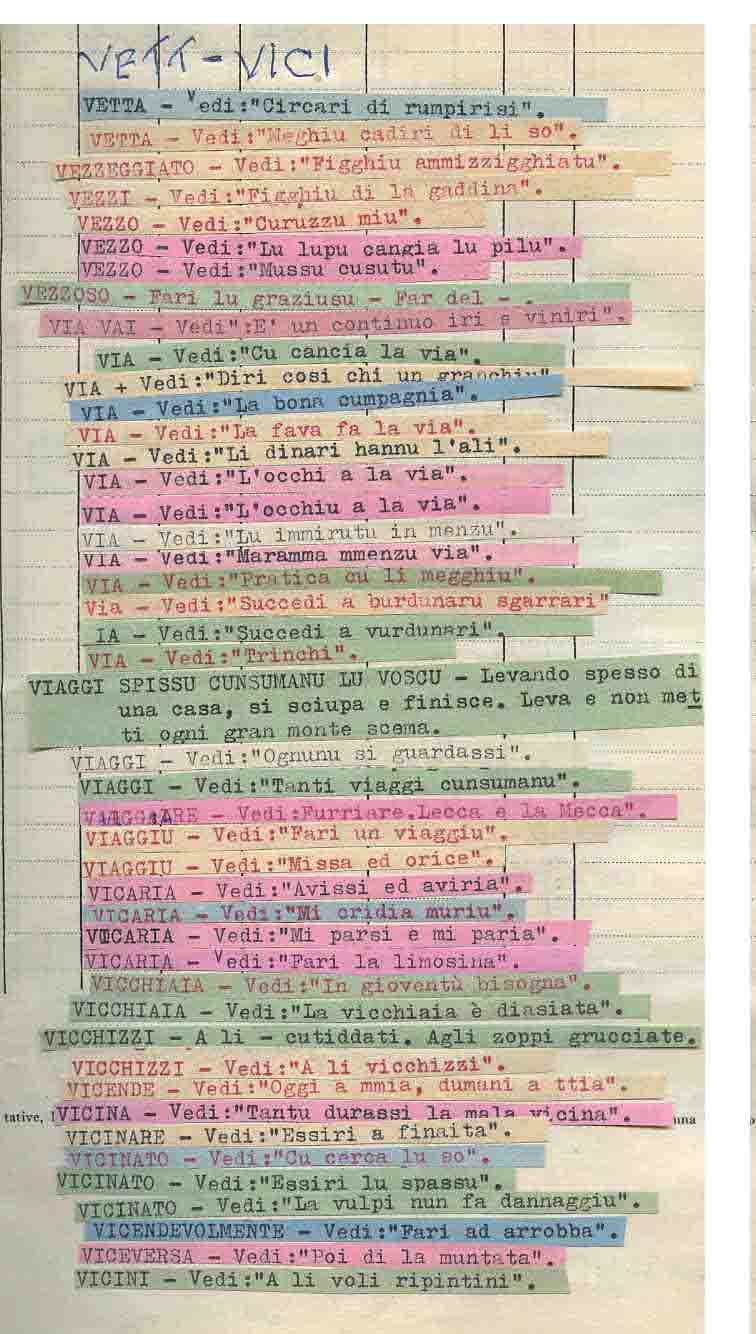 VETT-VICI
VETTA - Vedi:"Circari di rumpirisi".
VETTA - Vedi:"Meghiu cadiri di li so".
VEZZEGGIATO - Vedi:"Figghiu ammizzigghiatu".
VEZZI - Vedi:"Figghiu di la gaddina".
VEZZO - Vedi:"Curuzzu miu".
VEZZO - Vedi:"Lu lupu cangia lu pilu".
VEZZO - Vedi:"Mussu cusutu".
VEZZOSO - Fari lu graziusu - Far del - .
VIA VAI - Vedi":E' un continuo iri e viniri".
VIA - Vedi:"Cu cancia la via".
VIA + Vedi:"Diri cosi chi un granchiu"
VIA - Vedi:"La bona cumpagnia".
VIA - Vedi:"La fava fa la via".
VIA - Vedi:"Li dinari hannu l'ali".
VIA - Vedi:"L'occhi a la via".
VIA - Vedi:"L'occhiu a la via".
VIA - Vedi:"Lu immirutu in menzu".
VIA - Vedi:"Maramma mmenzu via".
VIA - Vedi:"Pratica cu li megghiu".
Via - Vedi:"Succedi a burdunaru sgarrari"
IA - Vedi:"Succedi a vurdunari".
VIA - Vedi:"Trinchi".
VIAGGI SPISSU CUNSUMANU LU VOSCU - Levando spesso di
una casa, si sciupa e finisce. Leva e non met
ti ogni gran monte scema.
VIAGGI - Vedi:"Ognunu si guardassi".
VIAGGI - Vedi:"Tanti viaggi cunsumanu".
VIAGGIARE - Vedi:Furriare.Lecca e la Mecca".
VIAGGIU - Vedi:"Fari un viaggiu".
VIAGGIU - Vedi:"Missa ed orice".
VICARIA - Vedi:"Avissi ed aviria".
VICARIA - Vedi:"Mi cridia muriu".
VICARIA - Vedi:"Mi parsi e mi paria".
VICARIA - Vedi:"Fari la limosina".
VICCHIAIA - Vedi:"In gioventù bisogna".
VICCHIAIA - Vedi:"La vicchiaia è diasiata".
VICCHIZZI - A li - cutiddati. Agli zoppi grucciate.
VICCHIZZI - Vedi:"A li vicchizzi".
VICENDE - Vedi:"Oggi a mmia, dumani a ttia".
tative, VICINA - Vedi:"Tantu durassi la mala vicina". una
VICINARE - Vedi:"Essiri a finaita".
VICINATO - Vedi:"Cu cerca lu so".
VICINATO - Vedi:"Essiri lu spassu".
VICINATO - Vedi:"La vulpi nun fa dannaggiu".
VICENDEVOLMENTE - Vedi:"Fari ad arrobba".
VICEVERSA - Vedi:"Poi di la muntata".
VICINI - Vedi:"A li voli ripintini".